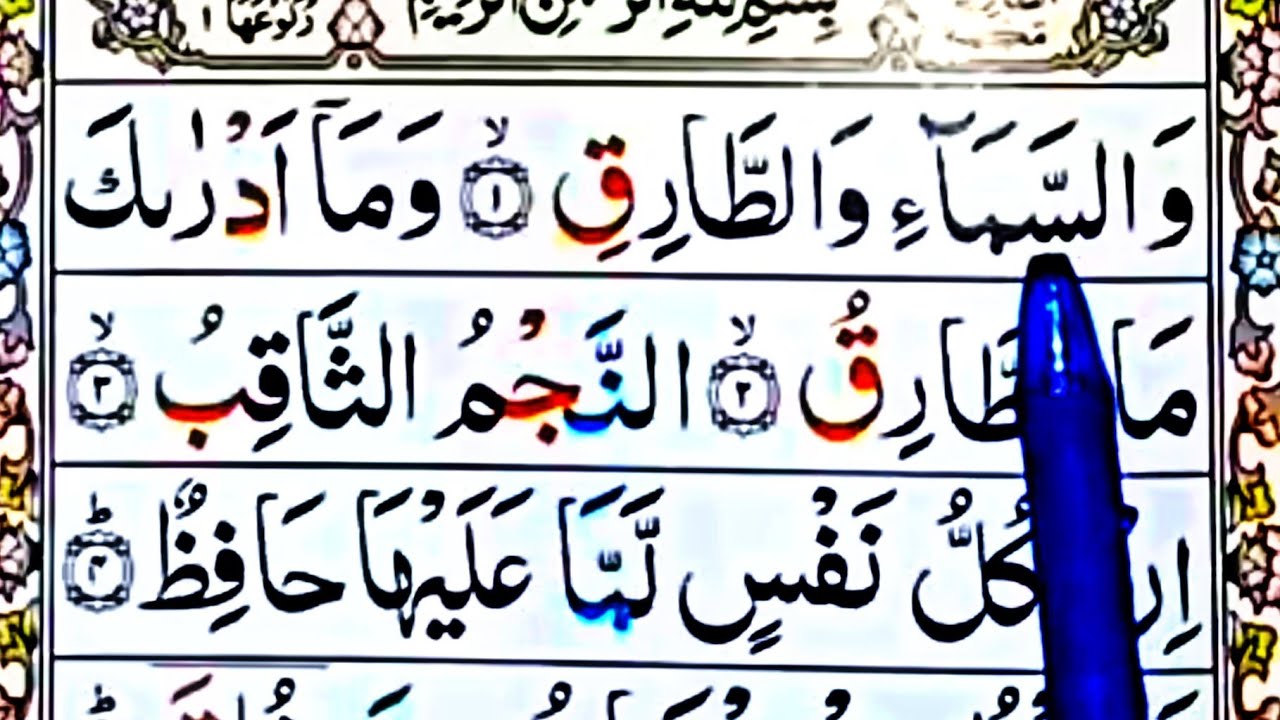 بِسْمِ اللّٰهِ الرَّحْمٰنِ الرَّحِيْمِ رُكُوْعُهَا ١
وَالسَّمَآءِ وَالطَّارِقِ ۙ‏﴿۱﴾ وَمَاۤ اَدْرٰىكَ
مَا الطَّارِقُ ۙ‏﴿۲﴾ النَّجْمُ الثَّاقِبُ ۙ‏﴿۳﴾
اِنْ كُلُّ نَفْسٍ لَّمَّا عَلَيْهَا حَافِظٌ ؕ‏﴿۴﴾